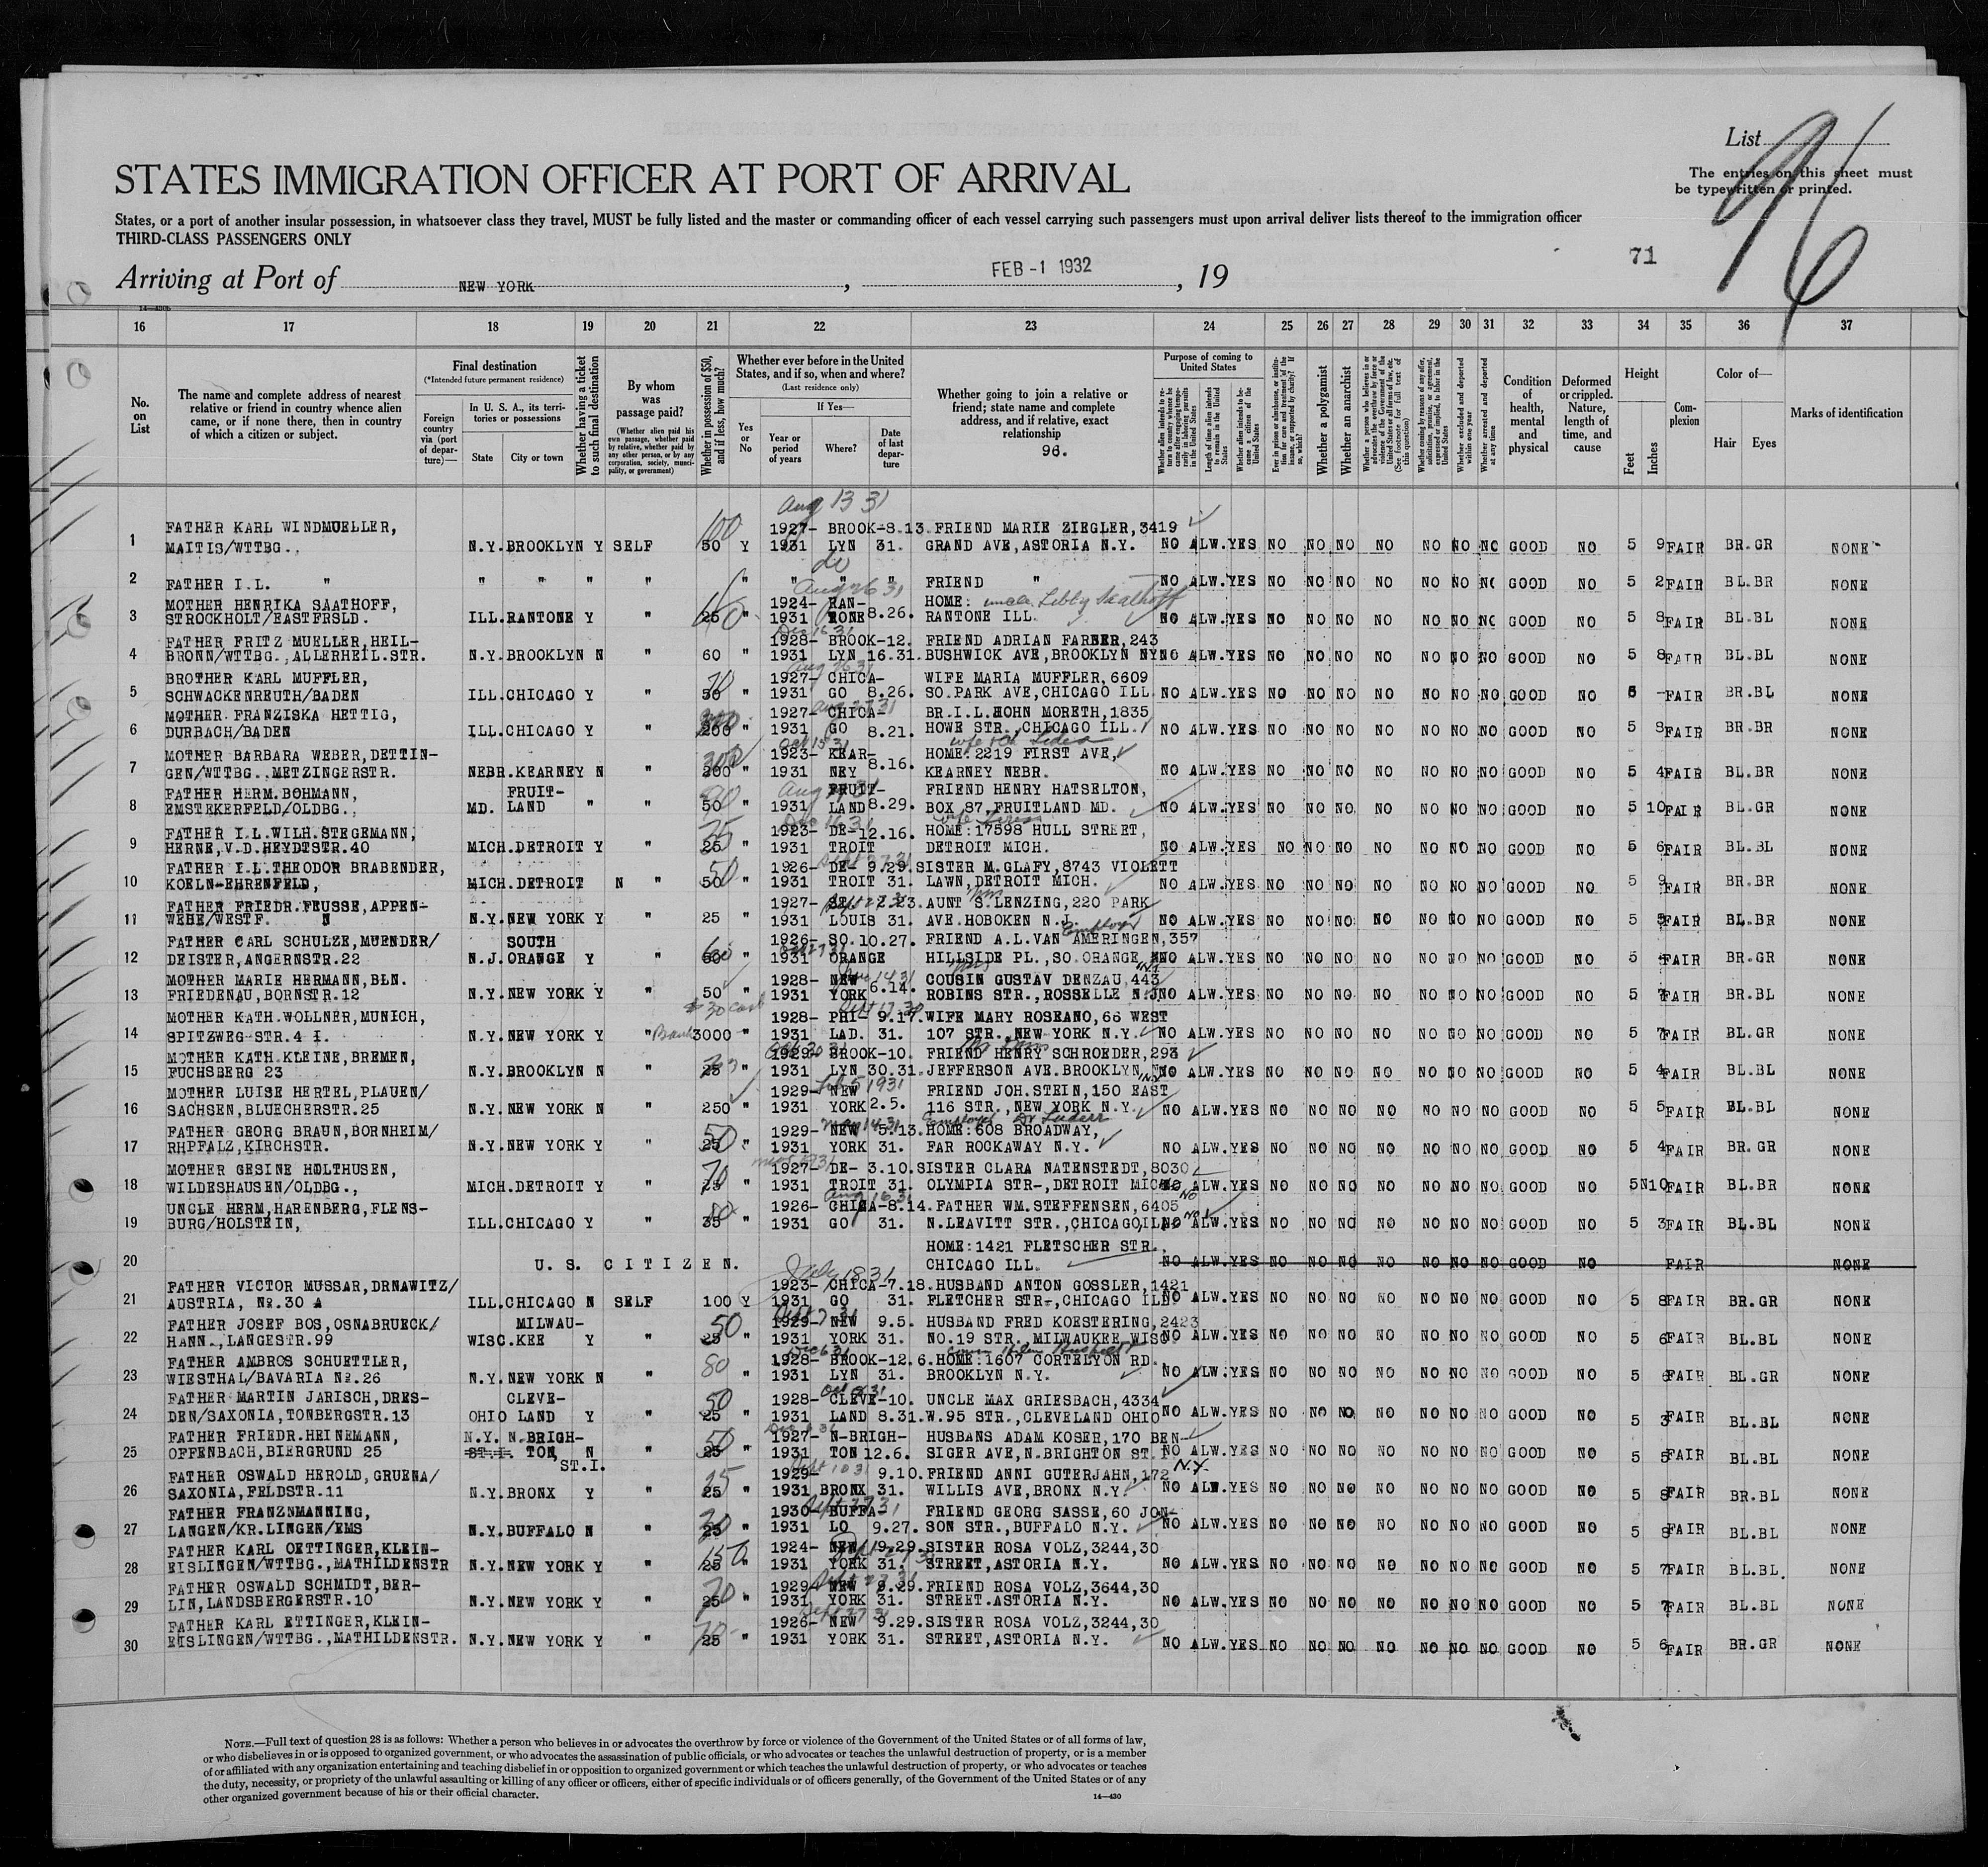 List
96
The entries on this sheet must
be typewritten or printed.
STATES IMMIGRATION OFFICER AT PORT OF ARRIVAL
States, or a port of another insular possession, in whatsoever class they travel, MUST be fully listed and the master or commanding officer of each vessel carrying such passengers must upon arrival deliver lists thereof to the immigration officer
THIRD-CLASS PASSENGERS ONLY
71
Arriving at Port of NEW YORK, FEB -1 1932, 19
14—430b
16 17 18 19 20 21 22 23 24 25 26 27 28 29 30 31 32 33 34 35 36 37
No. on List
The name and complete address of nearest relative or friend in country whence alien came, or if none there, then in country of which a citizen or subject.
Final destination
(*Intended future permanent residence)
Foreign country via (port of departure)—
In U. S. A., its territories or possessions
State
City or town
Whether having a ticket to such final destination
By whom was passage paid?
(Whether alien paid his own passage, whether paid by relative, whether paid by any other person, or by any corporation, society, municipality, or government)
Whether in possession of $50, and if less, how much?
Whether ever before in the United States, and if so, when and where?
(Last residence only)
Yes or No
If Yes—
Year or period of years
Where?
Date of last departure
Whether going to join a relative or friend; state name and complete address, and if relative, exact relationship
96.
Purpose of coming to United States
Whether alien intends to return to country whence he came after engaging temporarily in laboring pursuits in the United States
Length of time alien intends to remain in the United States
Whether alien intends to become a citizen of the United States
Ever in prison or almshouse, or institution for care and treatment of the insane, or supported by charity? If so, which?
Whether a polygamist
Whether an anarchist
Whether a person who believes in or advocates the overthrow by force or violence of the Government of the United States or all forms of law, etc. (See footnote for full text of this question)
Whether coming by reason of any offer, solicitation, promise, or agreement, expressed or implied, to labor in the United States
Whether excluded and deported within one year
Whether arrested and deported at any time
Condition of health, mental and physical
Deformed or crippled. Nature, length of time, and cause
Height
Feet
Inches
Complexion
Color of—
Hair
Eyes
Marks of identification
Aug 13 31
FATHER KARL WINDMUELLER, 100 1927- BROOK-8.13. FRIEND MARIE ZIEGLER,3419
1 MAITIS/WTTBG., N.Y.BROOKLYN Y SELF 50 Y 1931 LYN 31. GRAND AVE,ASTORIA N.Y. NO ALW.YES NO NO NO NO NO NO NO GOOD NO 5 9 FAIR BR.GR NONE
do
2 FATHER I.L. " " " " " " " " " FRIEND " NO ALW.YES NO NO NO NO NO NO NO GOOD NO 5 2 FAIR BL.BR NONE
Aug 26 31
MOTHER HENRIKA SAATHOFF, 1924- RAN- HOME: uncle Libby Saathoff
3 STROCKHOLT/EASTFRSLD. ILL.RANTONE Y " 25 " 1931 TONE 8.26. RANTONE ILL. NO ALW.YES NO NO NO NO NO NO NO GOOD NO 5 8 FAIR BL.BL NONE
Dec 16 31
FATHER FRITZ MUELLER,HEIL- 1928- BROOK-12. FRIEND ADRIAN FARBER,243
4 BRONN/WTTBG.,ALLERHEIL.STR. N.Y.BROOKLYN N " 60 " 1931 LYN 16.31. BUSHWICK AVE,BROOKLYN NY NO ALW.YES NO NO NO NO NO NO NO GOOD NO 5 8 FAIR BL.BL NONE
Aug 26 31
BROTHER KARL MUFFLER, 1927- CHICA- WIFE MARIA MUFFLER,6609
5 SCHWACKENREUTH/BADEN ILL.CHICAGO Y " 50 " 1931 GO 8.26. SO.PARK AVE,CHICAGO ILL NO ALW.YES NO NO NO NO NO NO NO GOOD NO 6 - FAIR BR.BL NONE
MOTHER FRANZISKA HETTIG, 1927- CHICA- BR.I.L.HOHN MORETH,1835
6 DURBACH/BADEN ILL.CHICAGO Y " 200 " 1931 GO 8.21. HOWE STR.,CHICAGO ILL. NO ALW.YES NO NO NO NO NO NO NO GOOD NO 5 8 FAIR BR.BR NONE
Oct 15 31
MOTHER BARBARA WEBER,DETTIN- 300 1923- KEAR- HOME:2219 FIRST AVE,
7 GEN/WTTBG.,METZINGERSTR. NEBR.KEARNEY N " 200 " 1931 NEY 8.16. KEARNEY NEBR. NO ALW.YES NO NO NO NO NO NO NO GOOD NO 5 4 FAIR BL.BR NONE
FATHER HERM.BOHMANN, FRUIT- FRUIT- FRIEND HENRY HATSELTON,
8 EMSTEKERFELD/OLDBG., MD. LAND " " 50 " 1931 LAND 8.29. BOX 87,FRUITLAND MD. NO ALW.YES NO NO NO NO NO NO NO GOOD NO 5 10 FAIR BL.GR NONE
Dec 16 31
FATHER I.L.WILH.STEGEMANN, 35 1923- DE-12.16. HOME:17598 HULL STREET,
9 HERNE,V.D.HEYDTSTR.40 MICH.DETROIT Y " 25 " 1931 TROIT DETROIT MICH. NO ALW.YES NO NO NO NO NO NO NO GOOD NO 5 6 FAIR BL.BL NONE
FATHER I.L.THEODOR BRABENDER, 50 1926- DE- 9.29. SISTER M.GLAFY,8743 VIOLETT
10 KOELN-EHRENFELD, MICH.DETROIT N " 50 " 1931 TROIT 31. LAWN,DETROIT MICH. NO ALW.YES NO NO NO NO NO NO NO GOOD NO 5 9 FAIR BR.BR NONE
FATHER FRIEDR.FEUSSE,APPEN- 1927- AUNT S.LENZING,220 PARK
11 WEHE/WESTF. N N.Y.NEW YORK Y " 25 " 1931 LOUIS 31. AVE.HOBOKEN N.J. NO ALW.YES NO NO NO NO NO NO NO GOOD NO 5 5 FAIR BL.BR NONE
Employer
FATHER CARL SCHULZE,MUENDER/ SOUTH 1926- SO.10.27. FRIEND A.L.VAN AMERINGEN,357
12 DEISTER,ANGERNSTR.22 N.J.ORANGE Y " 1931 ORANGE HILLSIDE PL.,SO.ORANGE NO ALW.YES NO NO NO NO NO NO NO GOOD NO 5 FAIR BR.GR NONE
MOTHER MARIE HERMANN,BLN. 1928- NEW COUSIN GUSTAV DENZAU,443
13 FRIEDENAU,BORNSTR.12 N.Y.NEW YORK Y " 50 " 1931 YORK 6.14. ROBINS STR.,ROSSELLE N.J. NO ALW.YES NO NO NO NO NO NO NO GOOD NO 5 7 FAIR BR.BL NONE
$30 cash Sept 17 30
MOTHER KATH.WOLLNER,MUNICH, 1928- PHI- 9.17. WIFE MARY ROSEANO,66 WEST
14 SPITZWEG-STR.4 I. N.Y.NEW YORK Y " Bank 3000 1931 LAD. 31. 107 STR.,NEW YORK N.Y. NO ALW.YES NO NO NO NO NO NO NO GOOD NO 5 7 FAIR BL.GR NONE
MOTHER KATH.KLEINE,BREMEN, 1929- BROOK-10. FRIEND HENRY SCHROEDER,293
15 FUCHSBERG 23 N.Y.BROOKLYN N " 25 " 1931 LYN 30.31. JEFFERSON AVE.BROOKLYN NO ALW.YES NO NO NO NO NO NO NO GOOD NO 5 4 FAIR BL.BL NONE
Feb 5 1931
MOTHER LUISE HERTEL,PLAUEN/ 1929- NEW FRIEND JOH.STEIN,150 EAST
16 SACHSEN,BLUECHERSTR.25 N.Y.NEW YORK N " 250 " 1931 YORK 2.5. 116 STR.,NEW YORK N.Y. NO ALW.YES NO NO NO NO NO NO NO GOOD NO 5 5 FAIR BL.BL NONE
May 14 31 Employer
FATHER GEORG BRAUN,BORNHEIM/ 50 1929- NEW 5.13. HOME:608 BROADWAY,
17 RHPFALZ,KIRCHSTR. N.Y.NEW YORK Y " 25 " 1931 YORK 31. FAR ROCKAWAY N.Y. NO ALW.YES NO NO NO NO NO NO NO GOOD NO 5 4 FAIR BR.GR NONE
MOTHER GESINE HOLTHUSEN, 70 1927- DE- 3.10. SISTER CLARA NATENSTEDT,8030
18 WILDESHAUSEN/OLDBG., MICH.DETROIT Y " " 1931 TROIT 31. OLYMPIA STR-,DETROIT MICH. NO ALW.YES NO NO NO NO NO NO NO GOOD NO 5 10 FAIR BL.BR NONE
Aug 16 31
UNCLE HERM,HARENBERG,FLENS- 1926- CHICA-8.14. FATHER WM.STEFFENSEN,6405
19 BURG/HOLSTEIN, ILL.CHICAGO Y " 35 " 1931 GO 31. N.LEAVITT STR.,CHICAGO,ILL. NO ALW.YES NO NO NO NO NO NO NO GOOD NO 5 3 FAIR BL.BL NONE
HOME:1421 FLETSCHER STR.,
20 U. S. C I T I Z E N. CHICAGO ILL. NO ALW.YES NO NO NO NO NO NO NO GOOD NO FAIR NONE
July 18 31
FATHER VICTOR MUSSAR,DRNAWITZ/ 1923- CHICA-7.18. HUSBAND ANTON GOSSLER,1421
21 AUSTRIA, No.30 A ILL.CHICAGO N SELF 100 Y 1931 GO 31. FLETCHER STR-,CHICAGO ILL NO ALW.YES NO NO NO NO NO NO NO GOOD NO 5 8 FAIR BR.GR NONE
FATHER JOSEF BOS,OSNABRUECK/ MILWAU- 50 1929- NEW 9.5. HUSBAND FRED KOESTERING,2423
22 HANN.,LANGESTR.99 WISC.KEE Y " 25 " 1931 YORK 31. NO.19 STR.,MILWAUKEE WISC NO ALW.YES NO NO NO NO NO NO NO GOOD NO 5 6 FAIR BL.BL NONE
Dec 6 31
FATHER AMBROS SCHUETTLER, 80 1928- BROOK-12.6. HOME:1607 CORTELYON RD.
23 WIESTHAL/BAVARIA No.26 N.Y.NEW YORK N " " 1931 LYN 31. BROOKLYN N.Y. NO ALW.YES NO NO NO NO NO NO NO GOOD NO 5 6 FAIR BL.GR NONE
FATHER MARTIN JARISCH,DRES- CLEVE- 50 1928- CLEVE-10. UNCLE MAX GRIESBACH,4334
24 DEN/SAXONIA,TONBERGSTR.13 OHIO LAND Y " 25 " 1931 LAND 8.31. W.95 STR.,CLEVELAND OHIO NO ALW.YES NO NO NO NO NO NO NO GOOD NO 5 3 FAIR BL.BL NONE
FATHER FRIEDR.HEINEMANN, N.Y. N.BRIGH- 50 1927- N-BRIGH- HUSBANS ADAM KOSER,170 BEN-
25 OFFENBACH,BIERGRUND 25 ST.I. TON, N " 25 " 1931 TON 12.6. SIGER AVE,N.BRIGHTON ST.I. NO ALW.YES NO NO NO NO NO NO NO GOOD NO 5 5 FAIR BL.BL NONE
ST.I. N.Y.
FATHER OSWALD HEROLD,GRUENA/ 1929- 9.10. FRIEND ANNI GUTERJAHN,172
26 SAXONIA,FELDSTR.11 N.Y.BRONX Y " 25 " 1931 BRONX 31. WILLIS AVE,BRONX N.Y. NO ALW.YES NO NO NO NO NO NO NO GOOD NO 5 8 FAIR BR.BL NONE
FATHER FRANZNMANNING, 1930- BUFFA- FRIEND GEORG SASSE,60 JON-
27 LANGEN/KR.LINGEN/EMS N.Y.BUFFALO N " 25 " 1931 LO 9.27. SON STR.,BUFFALO N.Y. NO ALW.YES NO NO NO NO NO NO NO GOOD NO 5 8 FAIR BL.BL NONE
FATHER KARL OETTINGER,KLEIN- 150 1924- NEW 9.29. SISTER ROSA VOLZ,3244,30
28 EISLINGEN/WTTBG.,MATHILDENSTR N.Y.NEW YORK Y " 25 " 1931 YORK 31. STREET,ASTORIA N.Y. NO ALW.YES NO NO NO NO NO NO NO GOOD NO 5 7 FAIR BL.BL. NONE
FATHER OSWALD SCHMIDT,BER- 70 1929- NEW 9.29. FRIEND ROSA VOLZ,3644,30
29 LIN,LANDSBERGERSTR.10 N.Y.NEW YORK Y " 25 " 1931 YORK 31. STREET.ASTORIA N.Y. NO ALW.YES NO NO NO NO NO NO NO GOOD NO 5 7 FAIR BL.BL NONE
Sept 27 31
FATHER KARL ETTINGER,KLEIN- 1926- NEW 9.29. SISTER ROSA VOLZ,3244,30
30 EISLINGEN/WTTBG.,MATHILDENSTR. N.Y.NEW YORK Y " 25 " 1931 YORK 31. STREET,ASTORIA N.Y. NO ALW.YES NO NO NO NO NO NO NO GOOD NO 5 6 FAIR BR.GR NONE
NOTE.—Full text of question 28 is as follows: Whether a person who believes in or advocates the overthrow by force or violence of the Government of the United States or of all forms of law,
or who disbelieves in or is opposed to organized government, or who advocates the assassination of public officials, or who advocates or teaches the unlawful destruction of property, or is a member
of or affiliated with any organization entertaining and teaching disbelief in or opposition to organized government or which teaches the unlawful destruction of property, or who advocates or teaches
the duty, necessity, or propriety of the unlawful assaulting or killing of any officer or officers, either of specific individuals or of officers generally, of the Government of the United States or of any
other organized government because of his or their official character.
14—430